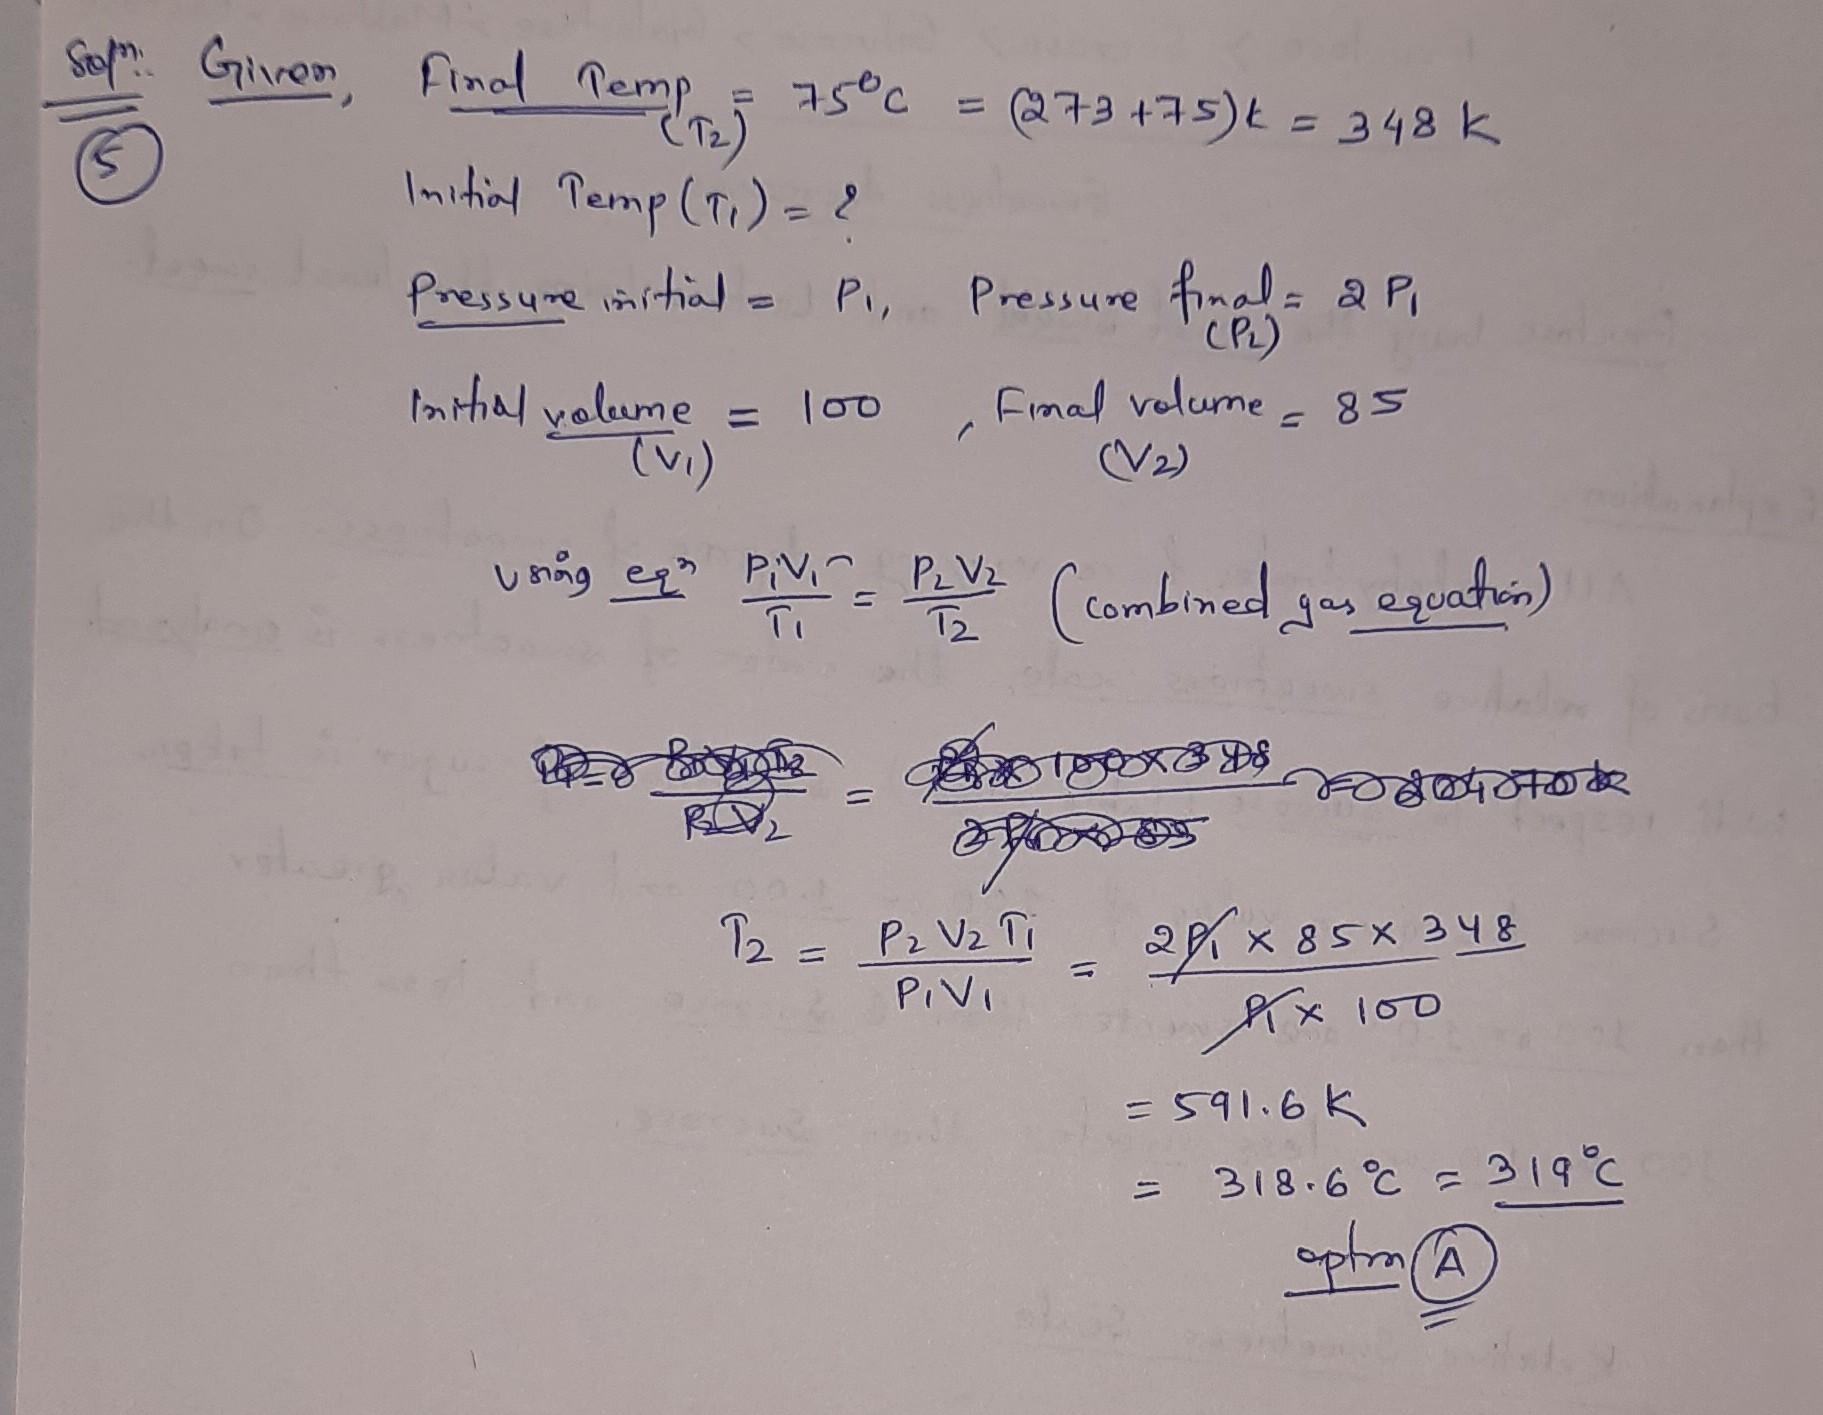 Soln:. Given, Final Temp (T2) = 75°C = (273+75)k = 348 K
5
Initial Temp (T1) = ?
Pressure initial = P1, Pressure final (P2) = 2 P1
Initial volume (V1) = 100 , Final volume (V2) = 85
Using eqn P1V1/T1 = P2V2/T2 (combined gas equation)
T2 = P2 V2 T1 / P1V1 = 2P1 x 85 x 348 / P1 x 100
= 591.6 K
= 318.6°C = 319°C
option A